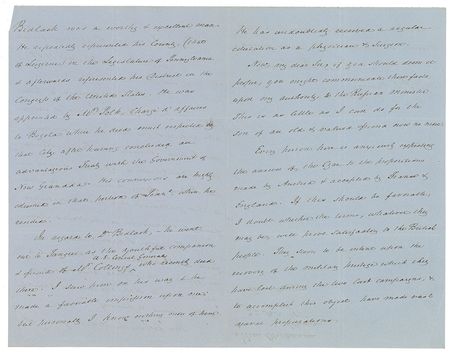 Bidlack was a worthy & excellent man.
He repeatedly represented his County (that
of Luzerne) in the Legislature of Pennsylvania
& afterwards represented his District in the
Congress of the United States. He was
appointed by Mr. Polk, Chargé d'affaires
to Bogota where he died much respected
that City after having concluded an
advantageous Treaty with the Government of
New Granada. His connexions are highly
esteemed in that portion of Penna. where he
resided.
In regard to Dr. Bidlack, – he went
out to Tangier as the youthful companion
& friend to Mr. Collings, U.S. Consul General who recently died
there. I saw him on his way & he
made a favorable impression upon me:
but personally I know nothing more of him.
He has undoubtedly received a regular
education as a physician & Surgeon.
Now, my dear Sir, if you should deem it
proper, you might communicate these facts
upon my authority to the Russian Minister.
This is as little as I can do for the
son of an old & valued friend now no more.
Every person here is anxiously expecting
the answer of the Czar to the propositions
made by Austria & accepted by France &
England. If this should be favorable,
I doubt whether the terms, whatever they
may be, will prove satisfactory to the British
people. They seem to be intent upon the
recovery of the military prestige which they
have lost during the two last campaigns, &
to accomplish this object have made vast
naval preparations.